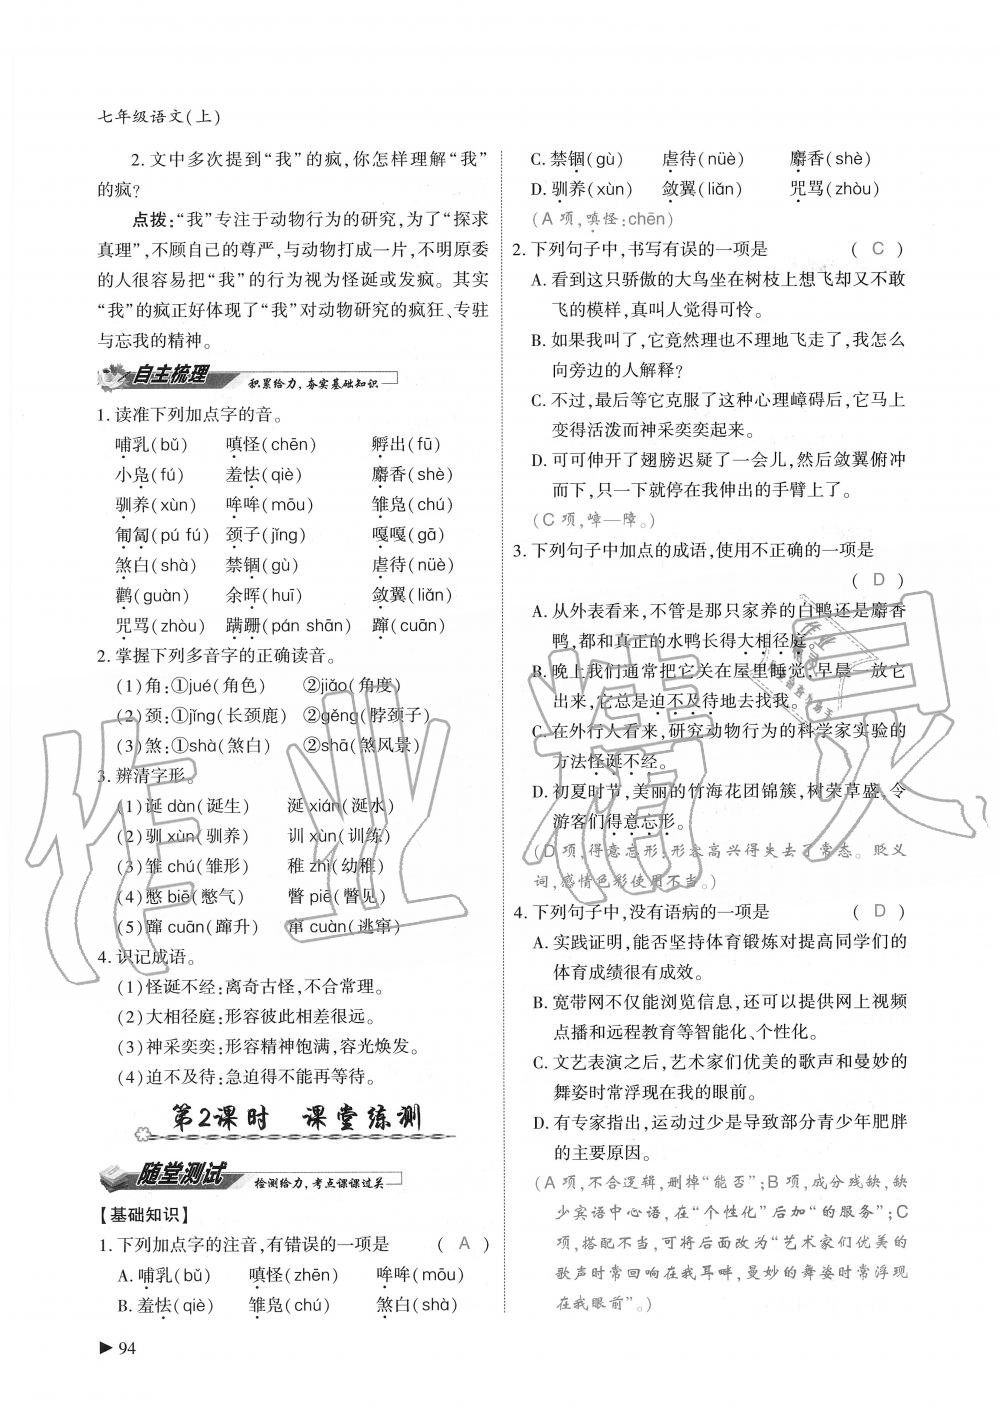 七年级语文(上)
2.文中多次提到“我”的疯,你怎样理解“我”
的疯?
点拨:“我”专注于动物行为的研究,为了“探求
真理”,不顾自己的尊严,与动物打成一片,不明原委
的人很容易把“我”的行为视为怪诞或发疯。其实
“我”的疯正好体现了“我”对动物研究的疯狂、专驻
与忘我的精神。
自主梳理 积累给力,夯实基础知识
1.读准下列加点字的音。
哺乳(bǔ) 嗔怪(chēn) 孵出(fū)
小凫(fú) 羞怯(qiè) 麝香(shè)
驯养(xùn) 哞哞(mōu) 雏凫(chú)
匍匐(pú fú) 颈子(jǐng) 嘎嘎(gā)
煞白(shà) 禁锢(gù) 虐待(nüè)
鹳(guàn) 余晖(huī) 敛翼(liǎn)
咒骂(zhòu) 蹒跚(pán shān) 蹿(cuān)
2.掌握下列多音字的正确读音。
(1)角:①jué(角色) ②jiǎo(角度)
(2)颈:①jǐng(长颈鹿) ②gěng(脖颈子)
(3)煞:①shà(煞白) ②shā(煞风景)
3.辨清字形。
(1)诞dàn(诞生) 涎xián(涎水)
(2)驯xùn(驯养) 训xùn(训练)
(3)雏chú(雏形) 稚zhì(幼稚)
(4)憋biē(憋气) 瞥piē(瞥见)
(5)蹿cuān(蹿升) 窜cuàn(逃窜)
4.识记成语。
(1)怪诞不经:离奇古怪,不合常理。
(2)大相径庭:形容彼此相差很远。
(3)神采奕奕:形容精神饱满,容光焕发。
(4)迫不及待:急迫得不能再等待。
第2课时 课堂练测
随堂测试 检测给力,考点课课过关
【基础知识】
1.下列加点字的注音,有错误的一项是 ( A )
A.哺乳(bǔ) 嗔怪(zhēn) 哞哞(mōu)
B.羞怯(qiè) 雏凫(chú) 煞白(shà)
C.禁锢(gù) 虐待(nüè) 麝香(shè)
D.驯养(xùn) 敛翼(liǎn) 咒骂(zhòu)
(A项,嗔怪:chēn)
2.下列句子中,书写有误的一项是 ( C )
A.看到这只骄傲的大鸟坐在树枝上想飞却又不敢
飞的模样,真叫人觉得可怜。
B.如果我叫了,它竟然理也不理地飞走了,我怎么
向旁边的人解释?
C.不过,最后等它克服了这种心理嶂碍后,它马上
变得活泼而神采奕奕起来。
D.可可伸开了翅膀迟疑了一会儿,然后敛翼俯冲
而下,只一下就停在我伸出的手臂上了。
(C项,嶂—障。)
3.下列句子中加点的成语,使用不正确的一项是
( D )
A.从外表看来,不管是那只家养的白鸭还是麝香
鸭,都和真正的水鸭长得大相径庭。
B.晚上我们通常把它关在屋里睡觉,早晨一放它
出来,它总是迫不及待地去找我。
C.在外行人看来,研究动物行为的科学家实验的
方法怪诞不经。
D.初夏时节,美丽的竹海花团锦簇,树荣草盛,令
游客们得意忘形。
(D项,得意忘形:形容高兴得失去了常态。贬义
词,感情色彩使用不当。)
4.下列句子中,没有语病的一项是 ( D )
A.实践证明,能否坚持体育锻炼对提高同学们的
体育成绩很有成效。
B.宽带网不仅能浏览信息,还可以提供网上视频
点播和远程教育等智能化、个性化。
C.文艺表演之后,艺术家们优美的歌声和曼妙的
舞姿时常浮现在我的眼前。
D.有专家指出,运动过少是导致部分青少年肥胖
的主要原因。
(A项,不合逻辑,删掉“能否”;B项,成分残缺,缺
少宾语中心语,在“个性化”后加“的服务”;C
项,搭配不当,可将后面改为“艺术家们优美的
歌声时常回响在我耳畔,曼妙的舞姿时常浮现
在我眼前”。)
94
作业精灵